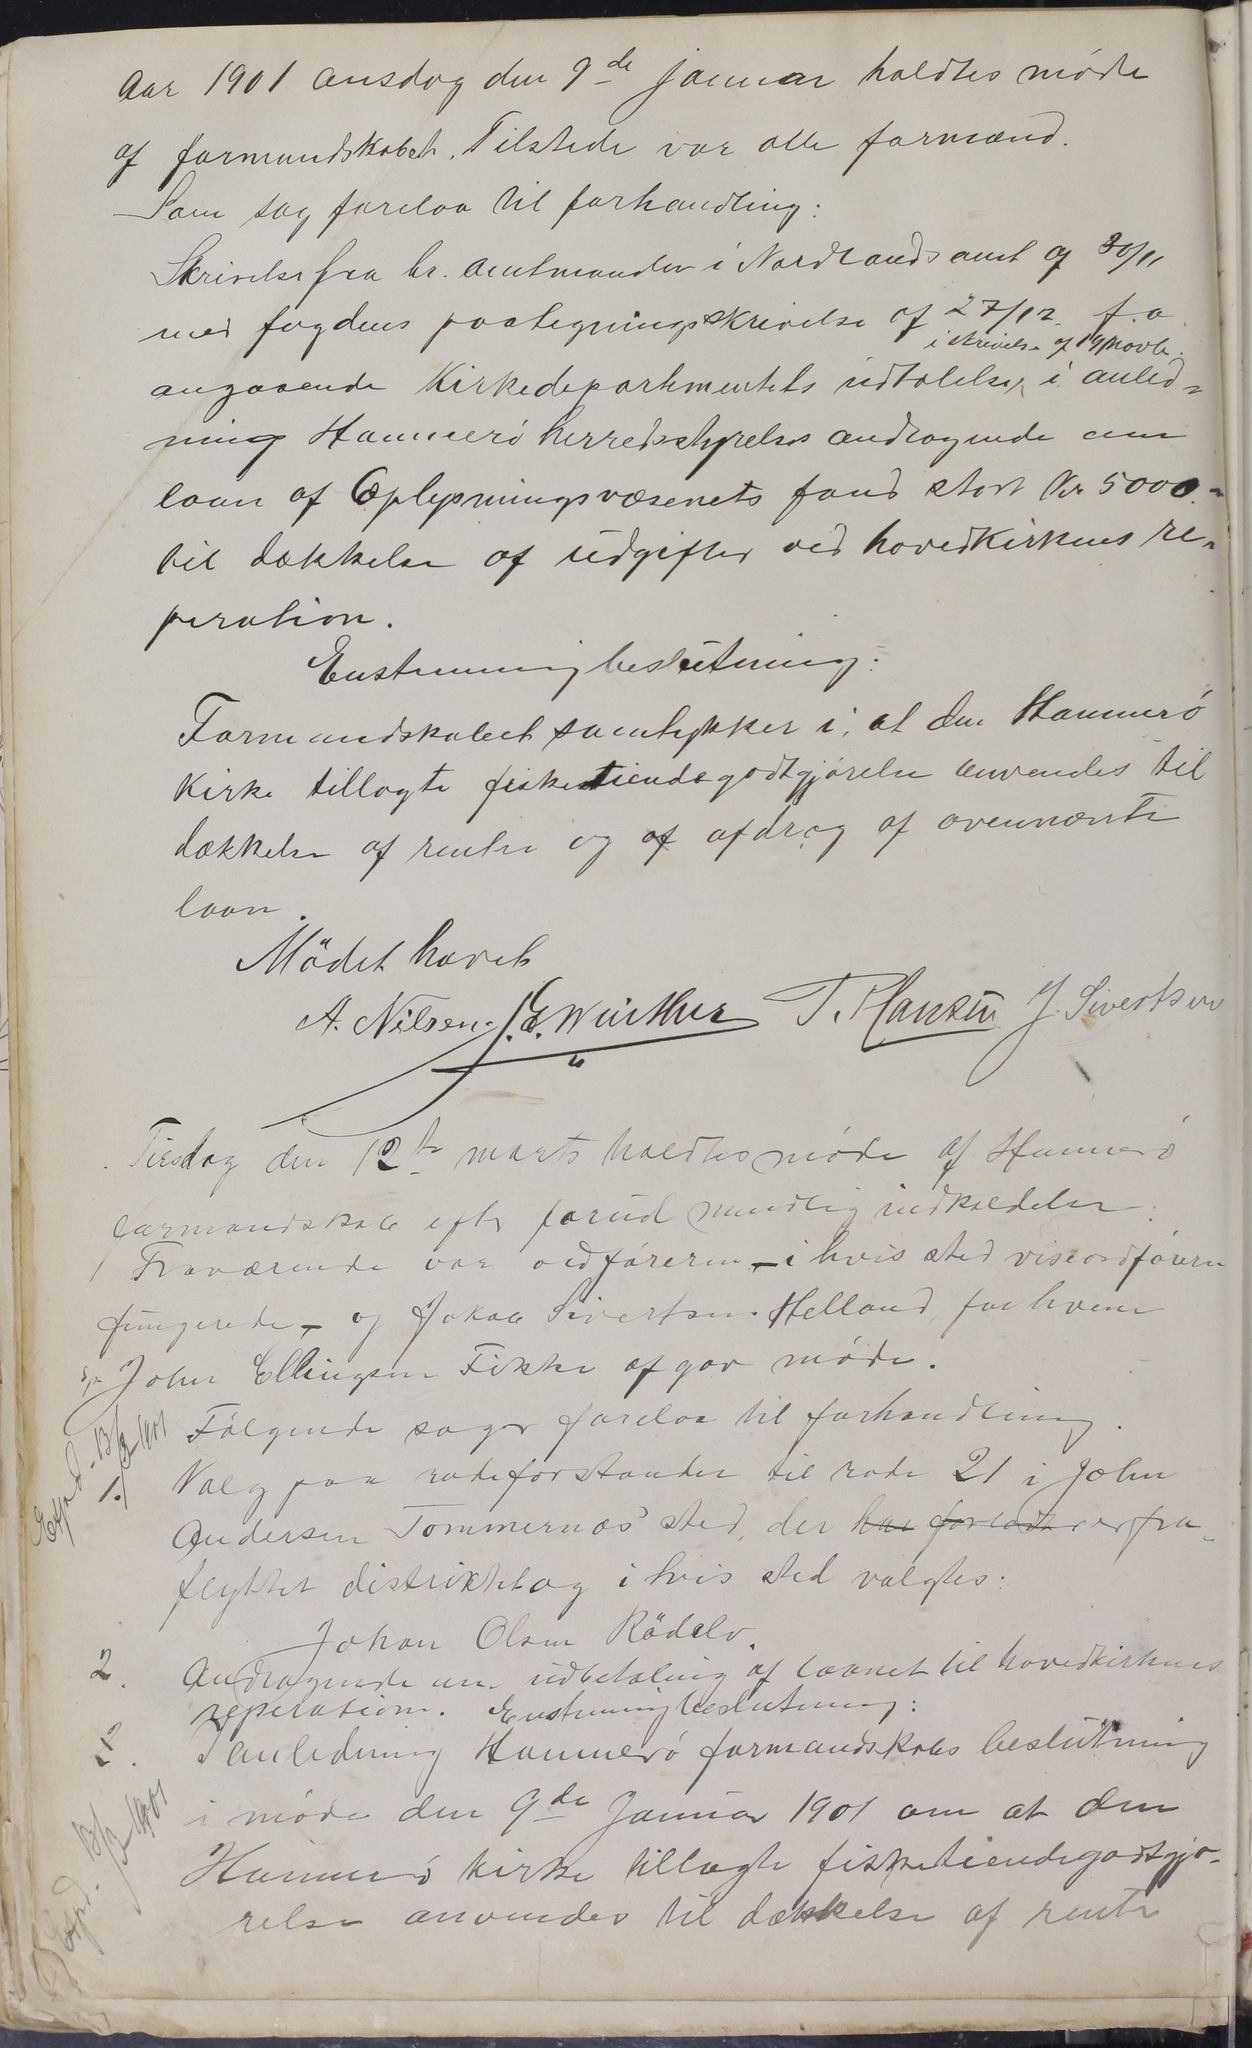 Aar 1901 onsdag den 9de januar holdtes møde
af formandskabet. Tilstede var alle formænd.
Som sag forelaa til forhandling:
Skrivelse fra hr. amtmanden i Nordlands amt af 30/11
med fogdens paategningsskrivelse af 27/12 f.a
i skrivelse af 19 novbr.
angaaende Kirkedepartementets udtalelse, i anled-
ning Hammerö herredsstyrelses andragende om
laan af Oplysningsvæsenets fond stort Kr 5000.-
til dækkelse af udgifter ved hovedkirkens re-
peration.
Enstemmig beslutning:
Formandskabet samtykker i, at den Hammerö
Kirke tillagte fisketiendegodtgjörelse anvendes til
dækkelse af renter og af afdrag af ovennævnte
laan.
Mödet hævet
A. Nilsen. J. E. Winther T. Hansen J. Sivertsen
Tirsdag den 12te marts holdtes møde af Hammerö
formandskab efter forud mundlig indkaldelse.
Fraværende var ordföreren – i hvis sted viseordförern
fungerede – og Jakob Sivertsen Helland, for hvem
John Ellingsen Fikke afgav møde.
Fölgende sager forelaa til forhandling.
Exped. 13/3 1901
1./ Valg paa rodeforstander til rode 21 i John
Andersen Tømmernæs sted, der har forladt er fra-
flyttet distriktet og i hvis sted valgtes:
Johan Olsen Rödelv.
2. Andragende om udbetaling af laanet til hovedkirkens
reperation. Enstemmig beslutning:
I anledning Hammerö formandskabs beslutning
i möde den 9de Januar 1901 om at den
Exped. 13/3 1901
Hammerö kirke tillagte fisketiendegodtgjö-
relse anvendes til dækkelse af rente